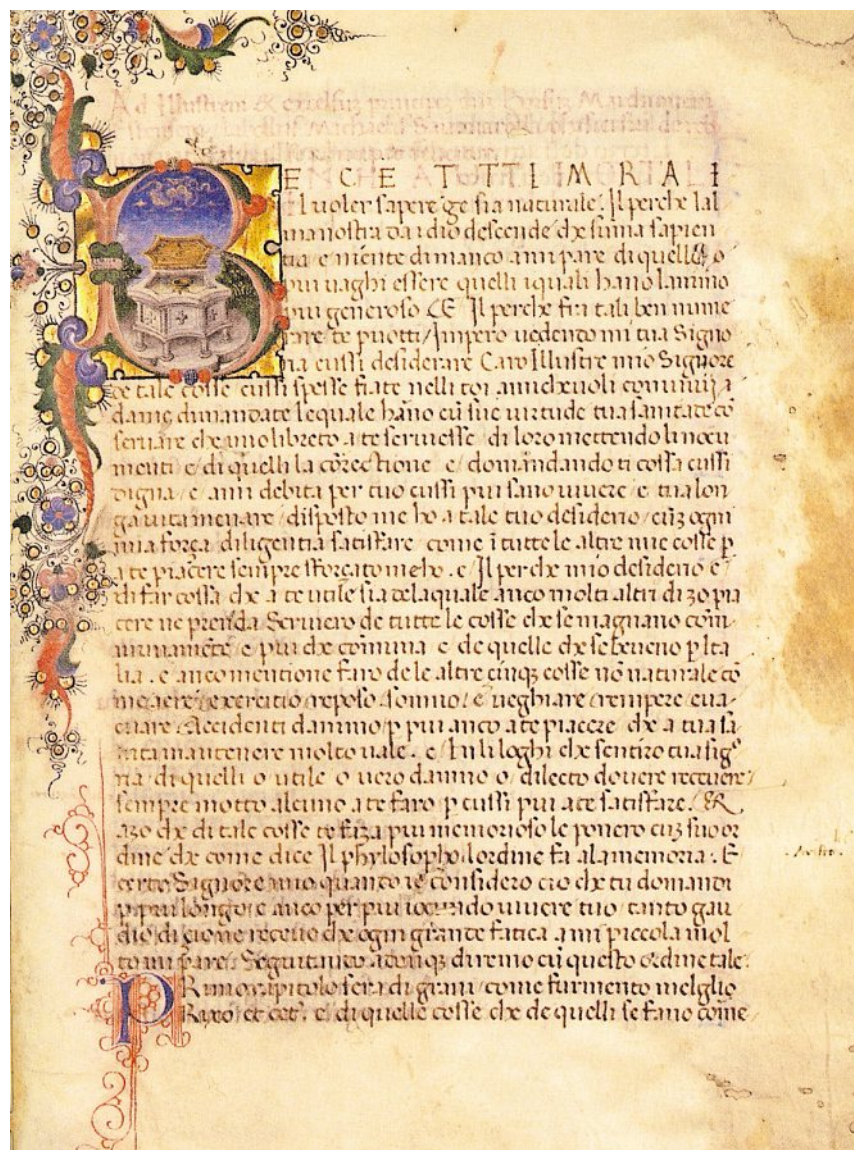 Ad Illustrem & excelsuz
BE CHE A TUTTI I MORTALI
el uoler sapere ge sia naturale. Il perche lal
ma nostra da idio descende che suma sapien
tia e niente dimanco anni pare di quelli o
piu uaghi essere quelli iquali hano lanimo
piu generoso CE Il perche fra tali ben nume
rare te puotti / Impero uedendo mi tua Signo
ria cussi desiderare Caro Illustre mio Signore
de tale cosse cussi spesse fiate nelli toi amicheuoli
dami dimandate lequale hano cu sue uirtude tua sanitate cō
seruare che uno libreto a te scriuesse di loro mettendo li nocu
menti e di quelli la corectione e domandando ti cossa cussi
digna e anni debita per tuo cussi piu sano uiuere e tua lon
ga uita menare / disposto me ho a tale tuo desiderio / cuz ogni
mia força diligentia satisfare come ĩ tutte le altre mie cosse p
a te piacere sempre sforçato meho . e Il perche mio desiderio e
di far cossa che a te utile sia dela quale anco molti altri di zo pia
cere ne prenda Scriuero de tutte le cosse che se magnano com
munamēte e piu che comuna e de quelle che se beueno p Ita
lia . e anco mentione faro de le altre cinqȝ cosse nō naturale cō
me aere / exercitio / reposo / somno / e ueghiare / rempere eua
cuare / Accidenti danimo p piu anco a te piacere che a tua sa
nita mantenere molto uale . e In li loghi che sentiro tua sigᵒ
ria di quelli o utile o uero danno o dilecto douere receuere /
sempre motto alcuno a te faro p cussi piu a te satisfare. ER
azo che di tale cosse te faza piu memorioso le ponero cuz suo or
dine che come dice Il phylosopho lordine fa ala memoria . E
certo Signore mio quanto io considero cio che tu domandi
p piu longo e anco per piu iocundo uiuere tuo tanto gau
dio di cio ne receuo che ogni grande fatica a mi piccola mol
to mi pare. Seguitando adonqȝ diremo cū questo ordine tale.
PRimo capitolo sera di grani / come furmento melglio
Rixo et cet. e di quelle cosse che de quelli se fano come